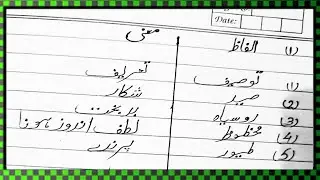 Date:
(1) الفاظ معنی
(1) توصیف تعریف
(2) صید شکار
(3) روسیاہ بدبخت
(4) محظوظ لطف اندوز ہونا
(5) طیور پرندے